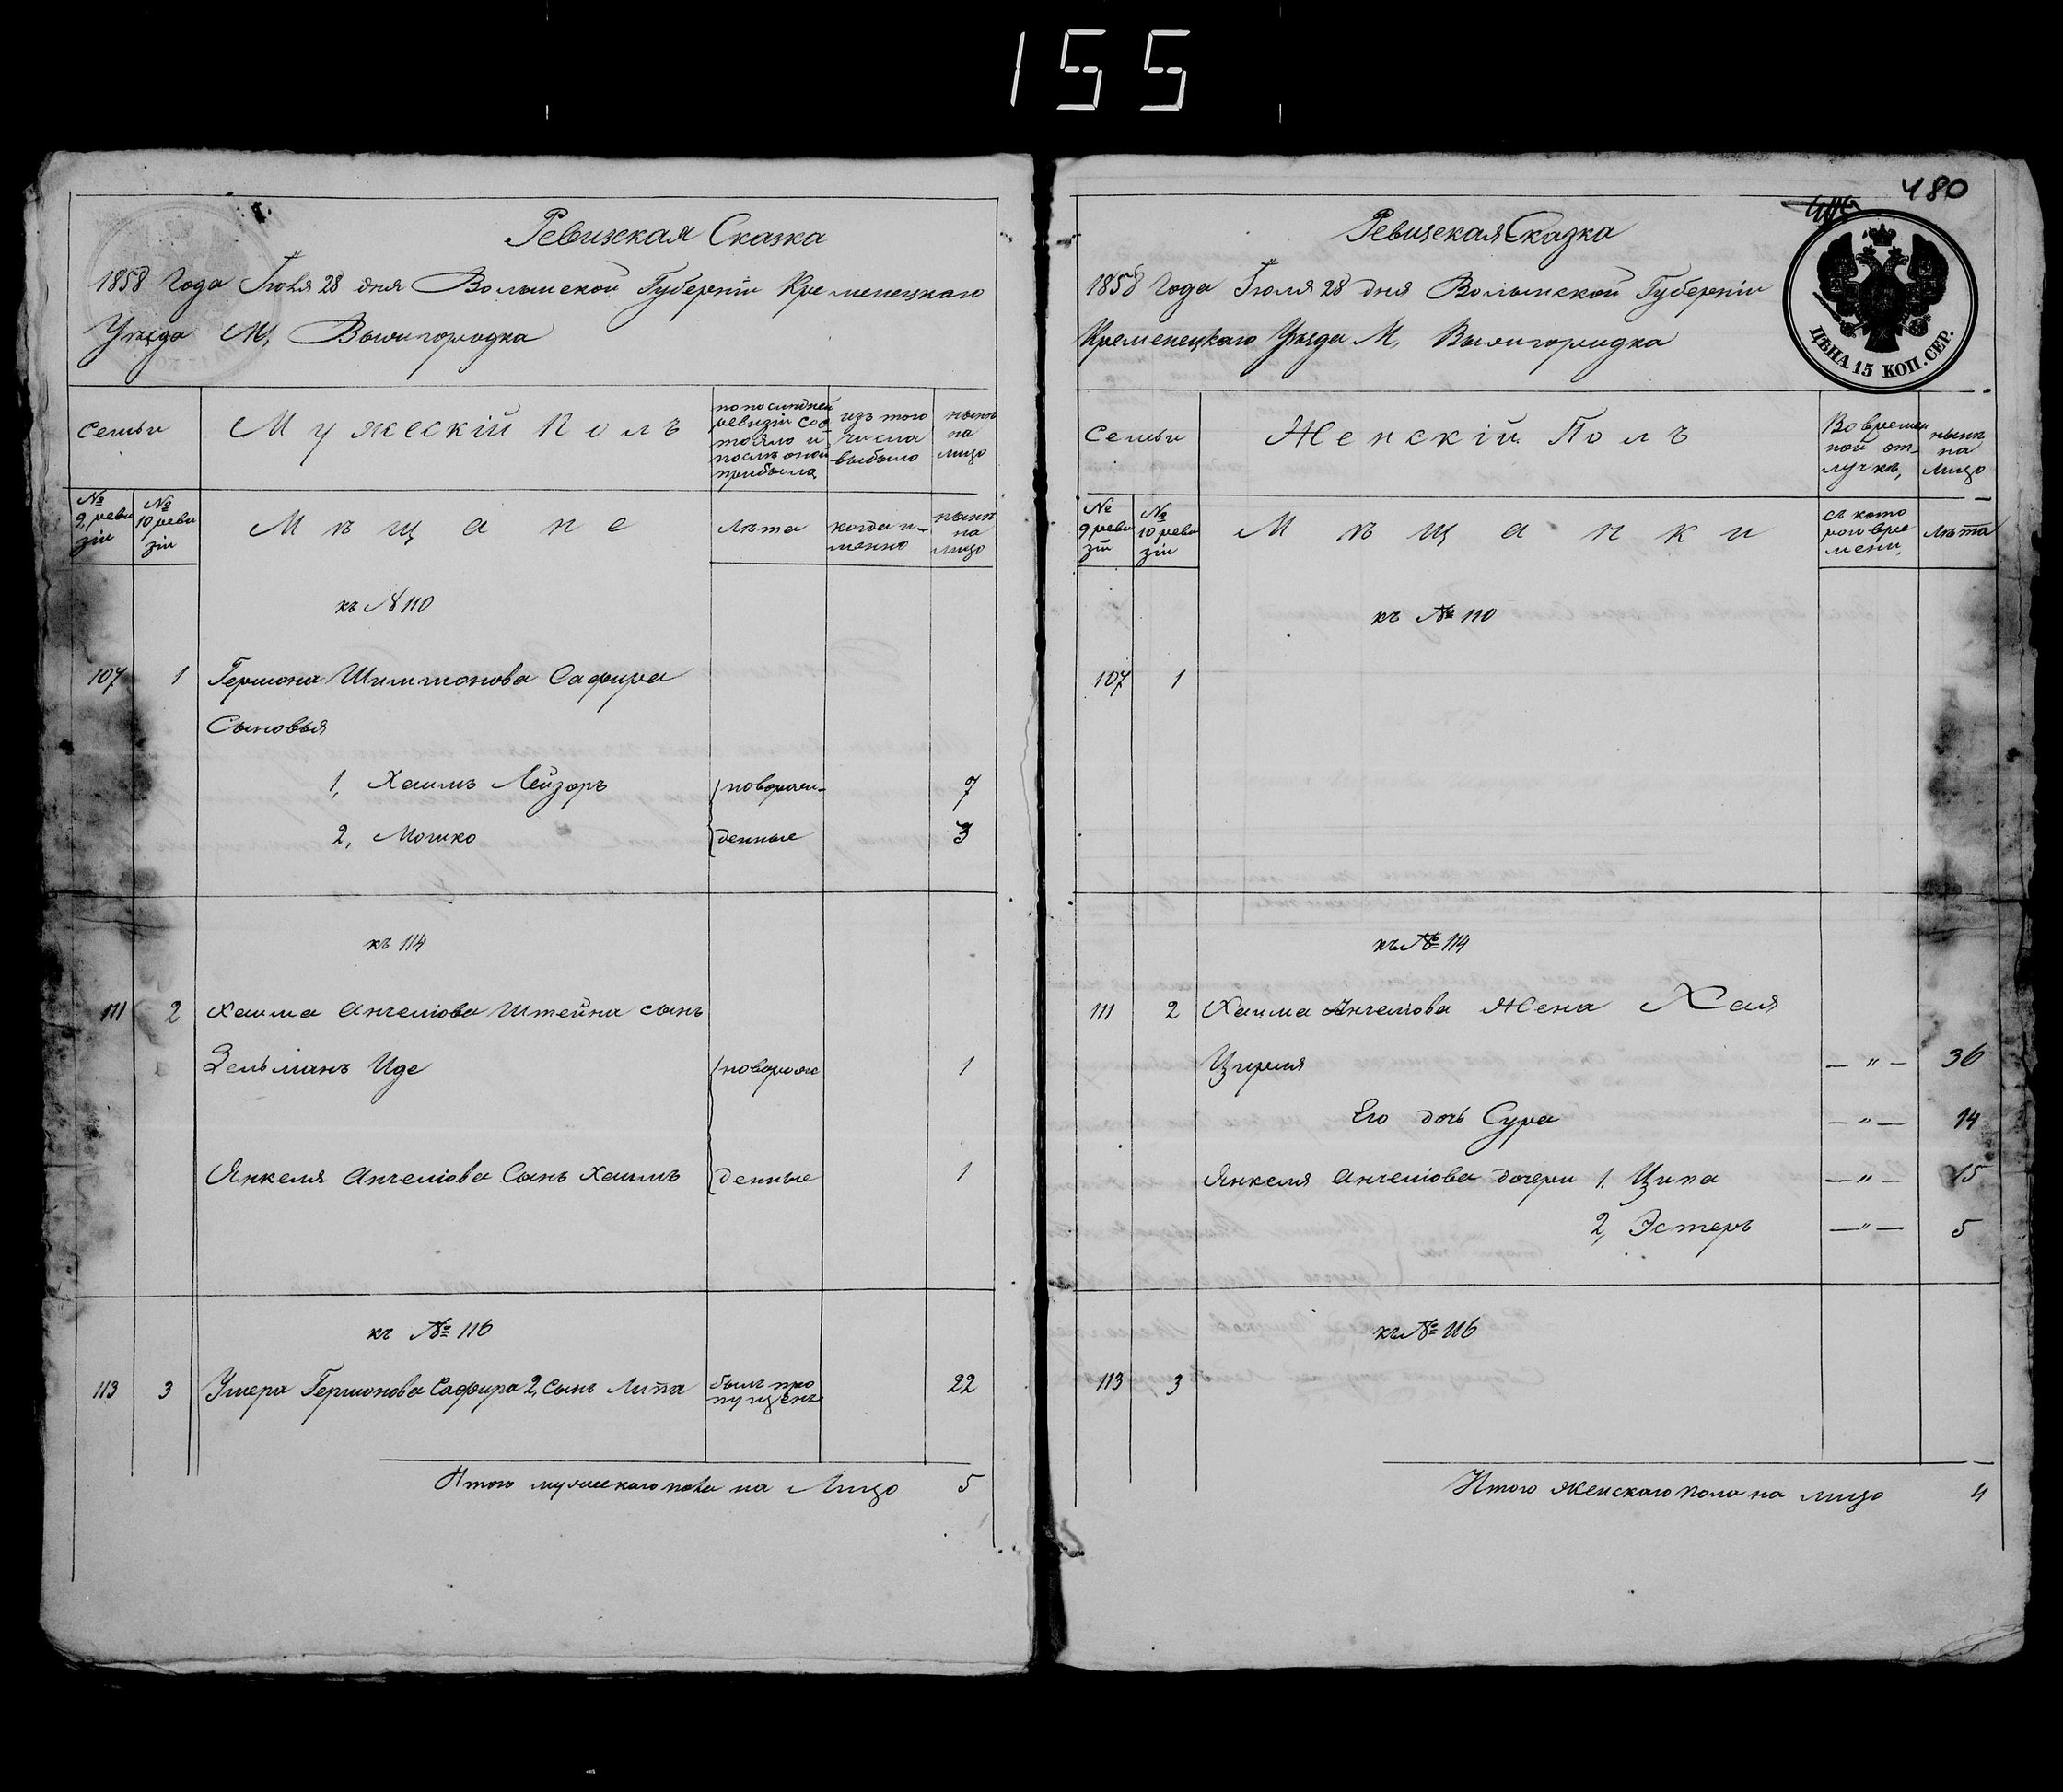 155
Ревизская Сказка
1858 Года Іюля 28 дня Волынской Губерніи Кременецкаго
Уѣзда М, Вышгородка
Семьи
Мужескій Полъ
по последней ревизіи состояло и послѣ оной прибыло
изъ того числа выбыло
нынѣ на лицо
№ 9, ревизіи
№ 10 ревизіи
Мѣщане
Лѣта
когда именно
нынѣ на лицо
къ № 110
107 1 Гершона Шимшонова Сафира
Сыновья
1, Хаимъ Лейзоръ новорож- 7
2, Мошко денные 3
къ 114
111 2 Хаима Анчелiова Штейна сынъ
Зельманъ Иде новорож 1
Янкеля Анчелiова Сынъ Хаимъ денные 1
къ № 116
113 3 Умера Гершонова Сафира 2, сынъ Липа былъ пропущенъ 22
Итого мужескаго пола на Лицо 5
480
Ревизская Сказка
1858 Года Іюля 28 дня Волынской Губерніи
Кременецкаго Уѣзда М, Вышгородка
ЦѢНА 15 КОП. СЕР.
Семьи
Женскій Полъ
Во временной отлучкѣ,
нынѣ на Лицо
№ 9 ревизіи
№ 10 ревизіи
Мѣщанки
съ которой времени,
Лѣта
къ № 110
107 1
къ № 114
111 2 Хаима Анчелiова Жена Хая
Цирля — " — 36
Его дочь Сура — " — 14
Янкеля Анчелiова дочери 1. Ципа — " — 15
2, Эстеръ — " — 5
къ № 116
113 3
Итого Женскаго пола на лицо 4